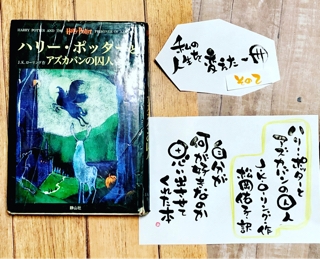 HARRY POTTER AND THE PRISONER OF AZKABAN
ハリー・ポッターと
アズカバンの囚人
J.K.ローリング 作
静山社
私の
人生を
変えた一冊
その2
ハリー・ポッターと
アズカバンの囚人
J.K.ローリング・作
松岡佑子・訳
自分が
何が好きなのか
思い出させて
くれた本